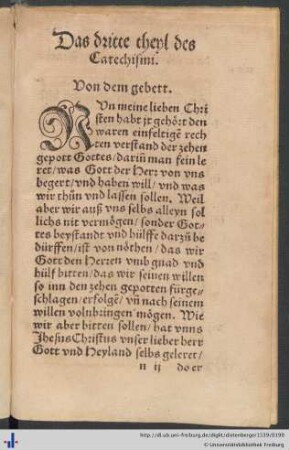 Das dritte theyl des
Catechismi.
Von dem gebett.
NUn meine lieben Chri
sten habt jr gehört den
waren einfeltigē rech
ten verstand der zehen
gepott Gottes/ dariñ man fein le
ret/ was Gott der Herr von vns
begert/ vnd haben will/ vnd was
wir thůn vnd lassen sollen. Weil
aber wir auß vns selbs alleyn sol
lichs nit vermögen/ sonder Got-
tes beystandt vnd hülffe darzů be
dürffen/ ist von nöthen/ das wir
Gott den Herren vmb gnad vnd
hülf bitten/ das wir seinen willen
so inn den zehen gepotten fürge-
schlagen/ erfolgē/ vñ nach seinem
willen volnbringen mögen. Wie
wir aber bitten sollen/ hat vnns
Jhesus Christus vnser lieber herr
Gott vnd Heyland selbs geleret/
n ij do er
http://dl.ub.uni-freiburg.de/diglit/dietenberger1539/0199
© Universitätsbibliothek Freiburg